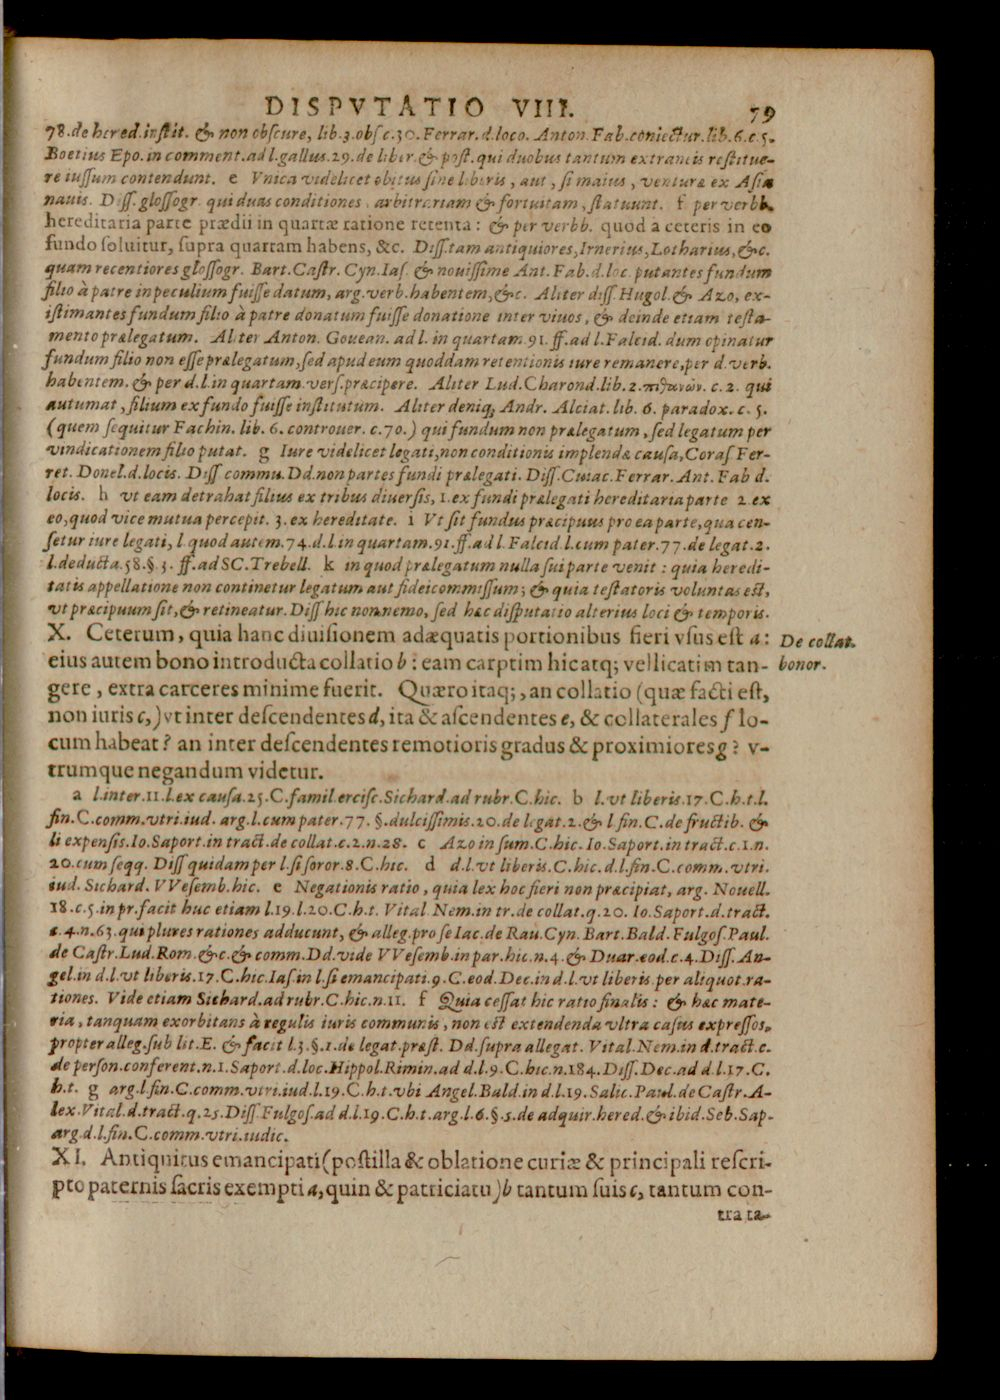 DISPVTATIO VIII. 79
78.de hered.instit. & non obscure, lib.3.obs c.30. Ferrar.d.loco. Anton.Fab.coniectur.lib.6.c.5.
Boetius Epo.in comment.ad l.gallus.29.de liber.& post.qui duobus tantum extraneis restitue-
re iussum contendunt. e Vnica videlicet obitus sine liberis, aut, si maius, venturæ ex Asia
nauis. Diss.glossogr. qui duas conditiones, arbitrariam & fortuitam, statuunt. f per verbb.
hereditaria parte prædii in quartæ ratione retenta: & per verbb. quod a ceteris in eo
fundo soluitur, supra quartam habens, &c. Diss.tam antiquiores, Irnerius, Lotharius, &c.
quam recentiores glossogr. Bart.Castr. Cyn.Ias. & nouissime Ant. Fab.d.loc. putantes fundum
filio à patre in peculium fuisse datum, arg.verb.habentem,&c. Aliter diss.Hugol.& Azo, ex-
istimantes fundum filio à patre donatum fuisse donatione inter viuos, & deinde etiam testa-
mento prælegatum. Aliter Anton. Gouean. ad l. in quartam 91. ff.ad l.Falcid. dum opinatur
fundum filio non esse prælegatum, sed apud eum quoddam retentionis iure remanere, per d.verb.
habentem. & per d.l.in quartam.vers.præcipere. Aliter Lud.Charond.lib.2.πιθανῶν. c.2. qui
autumat, filium ex fundo fuisse institutum. Aliter deniq; Andr. Alciat. lib. 6. paradox. c. 5.
(quem sequitur Fachin. lib. 6. controuer. c.70.) qui fundum non prælegatum, sed legatum per
vindicationem filio putat. g Iure videlicet legati, non conditionis implendæ causa, Coras Fer-
ret. Donel.d.locis. Diss commu. Dd.non partes fundi prælegati. Diss.Cuiac.Ferrar. Ant. Fab d.
locis. h vt eam detrahat filius ex tribus diuersis, 1.ex fundi prælegati hereditaria parte 2.ex
eo, quod vice mutua percepit. 3. ex hereditate. i Vt sit fundus præcipuus pro ea parte, qua cen-
setur iure legati, l quod autem.74.d.l in quartam.91.ff.ad l Falcid l.cum pater.77.de legat.2.
l.deducta.58.§.3. ff.ad SC.Trebell. k in quod prælegatum nulla sui parte venit: quia heredi-
tatis appellatione non continetur legatum aut fideicommissum; & quia testatoris voluntas est,
vt præcipuum sit, & retineatur. Diss hic nonnemo, sed hæc disputatio alterius loci & temporis.
X. Ceterum, quia hanc diuisionem adæquatis portionibus fieri vsus est a: De collat.
eius autem bono introducta collatio b: eam carptim hic atq; vellicatim tan- bonor.
gere, extra carceres minime fuerit. Quæro itaq;, an collatio (quæ facti est,
non iuris c,) vt inter descendentes d, ita & ascendentes e, & collaterales f lo-
cum habeat? an inter descendentes remotioris gradus & proximiores g? v-
trumque negandum videtur.
a l.inter.11.l.ex causa.25.C.famil ercisc.Sichard.ad rubr.C.hic. b l.vt liberis.17.C.h.t.l.
fin.C.comm.vtri.iud. arg.l.cum pater.77. §.dulcissimis.20.de legat.2.& l fin.C.de fructib. &
li expensis.Io.Saport.in tract.de collat.c.2.n.28. c Azo in sum.C.hic. Io.Saport.in tract.c.1.n.
20.cum seqq. Diss quidam per l.si soror.8.C.hic. d d.l.vt liberis.C.hic.d.l.fin.C.comm.vtri.
iud. Sichard. VVesemb.hic. e Negationis ratio, quia lex hoc fieri non præcipiat, arg. Nouell.
18.c.5.in pr.facit huc etiam l.19.l.20.C.h.t. Vital Nem.in tr.de collat.q.20. Io.Saport.d.tract.
c.4.n.63.qui plures rationes adducunt, & alleg.pro se Iac.de Rau.Cyn. Bart. Bald. Fulgos.Paul.
de Castr.Lud.Rom.&.c.& comm.Dd.vide VVesemb.in par.hic.n.4.& Duar.eod.c.4.Diss.An-
gel.in d.l.vt liberis.17.C.hic.Ias.in l.si emancipati.9.C.eod.Dec.in d.l.vt liberis per aliquot ra-
tiones. Vide etiam Sichard.ad rubr.C.hic.n.11. f Quia cessat hic ratio finalis: & hæc mate-
ria, tanquam exorbitans à regulis iuris communis, non est extendenda vltra casus expressos,
propter alleg.sub lit.E. & facit l.3.§.1.de legat.præst. Dd.supra allegat. Vital.Nem.in d.tract.c.
de person.conferent.n.1.Saport.d.loc.Hippol.Rimin.ad d.l.9.C.hic.n.184.Diss.Dec.ad d.l.17.C.
h.t. g arg.l.fin.C.comm.vtri.iud.l.19.C.h.t.vbi Angel.Bald.in d.l.19.Salic.Paul.de Castr.A-
lex.Vital.d.tract.q.25.Diss.Fulgos.ad d.l.19.C.h.t.arg.l.6.§.5.de adquir.hered.& ibid.Seb.Sap-
arg.d.l.fin.C.comm.vtri.iudic.
XI. Antiquitus emancipati (postilla & oblatione curiæ & principali rescri-
pto paternis sacris exempti a, quin & patriciatu) b tantum suis c, tantum con-
tra ta-